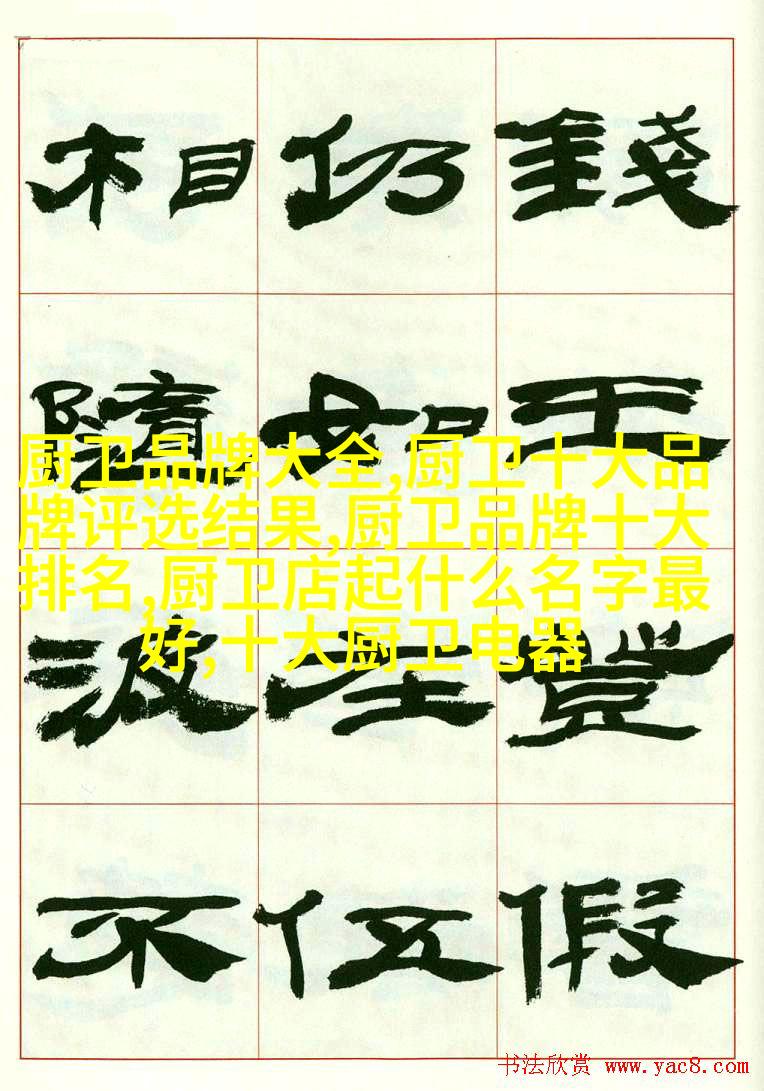 錢王豈假
仍如伍
相隨波不
厨卫品牌大全,厨卫十大品
牌评选结果,厨卫品牌十大
排名,厨卫店起什么名字最
好,十大厨卫电器
书法欣赏 www.yac8.com